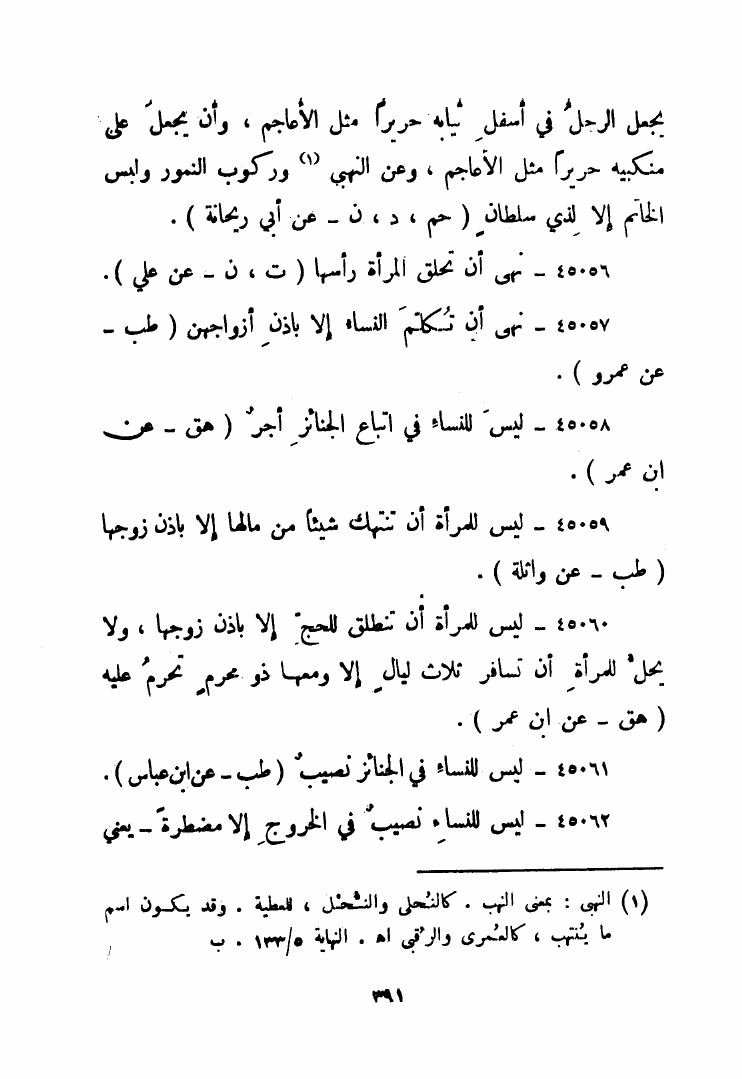 يجعل الرجلُ في أسفلِ ثيابه حريراً مثل الأعاجم ، وأن يجعلَ على
منكبيه حريراً مثل الأعاجم ، وعن النهبي (١) وركوب النمور ولبس
الخاتم إلا لِذي سلطانٍ ( حم ، د ، ن - عن أبي ريحانة ) .
٤٥٠٥٦ - نهى أن تحلق المرأة رأسها ( ت ، ن - عن علي ) .
٤٥٠٥٧ - نهى أن تُكلَّمَ النساء إلا باذنِ أزواجهن ( طب -
عن عمرو ) .
٤٥٠٥٨ - ليسَ للنساء في اتباع الجنائزِ أجرٌ ( هق - عن
ابن عمر ) .
٤٥٠٥٩ - ليس للمرأة أن تنتهك شيئاً من مالها إلا باذن زوجها
( طب - عن واثلة ) .
٤٥٠٦٠ - ليس للمرأة أن تنطلق للحجِّ إلا باذن زوجها ، ولا
يحلُّ للمرأةِ أن تسافر ثلاث ليالٍ إلا ومعها ذو محرمٍ تحرمُ عليه
( هق - عن ابن عمر ) .
٤٥٠٦١ - ليس للنساء في الجنائز نصيبٌ ( طب - عن ابن عباس ) .
٤٥٠٦٢ - ليس للنساءِ نصيبٌ في الخروجِ إلا مضطرةً - يعني
(١) النهبى : بمعنى النهب . كالنُحلى والنُّحْل ، للعطية . وقد يكون اسم
ما يُنتهب ، كالعُمرى والرُقبى اه . النهاية ١٣٣/٥ . ب
٣٩١